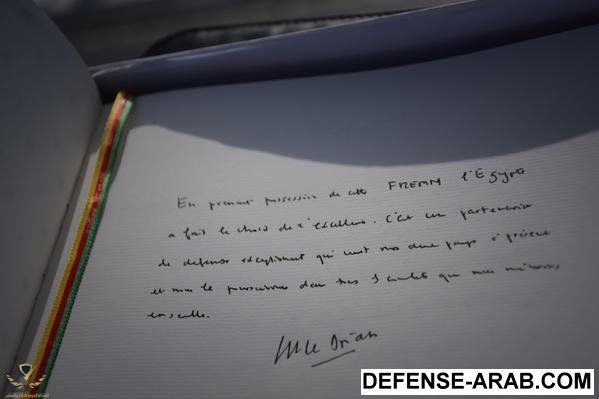 En prenant possession de cette FREMM l'Égypte
a fait le choix de l'excellence. C'est un partenariat
de défense exceptionnel qui unit nos deux pays à présent
et nous le poursuivrons dans que nous
ensemble.
Le Drian
DEFENSE-ARAB.COM